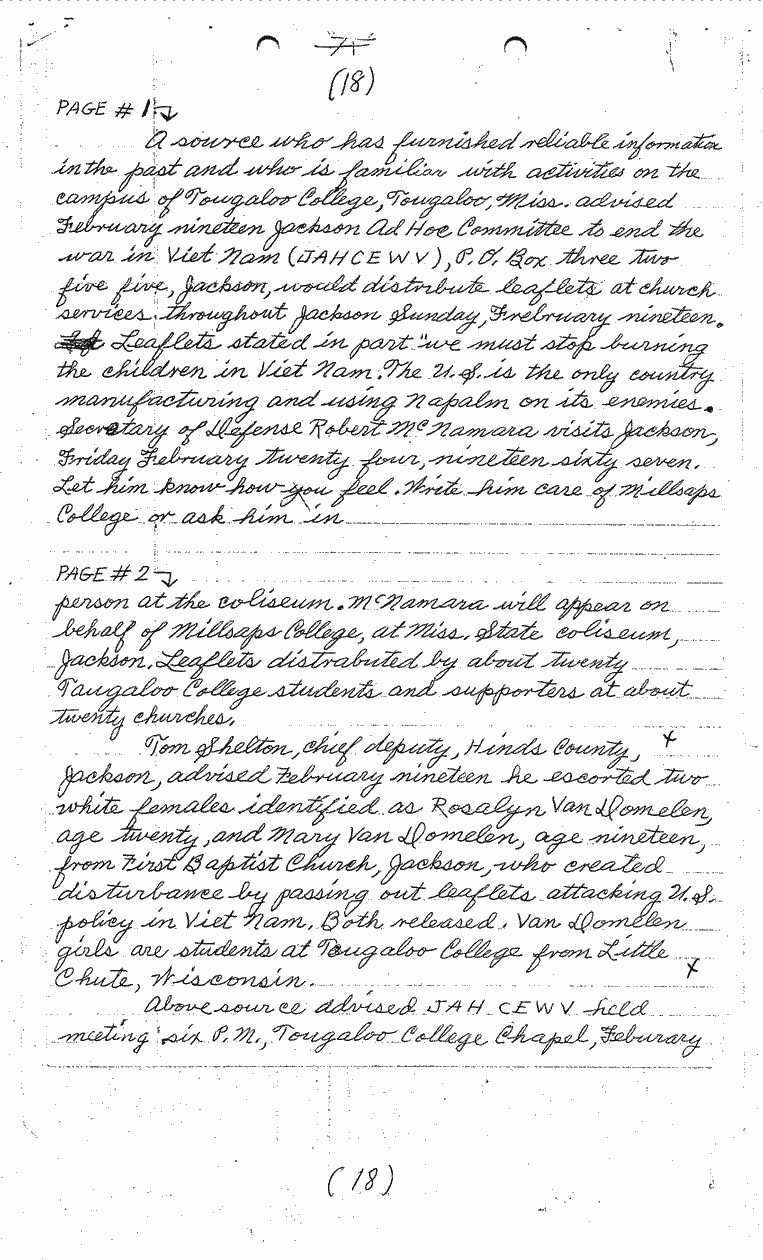 (18)
PAGE # 1
A source who has furnished reliable information
in the past and who is familiar with activities on the
campus of Tougaloo College, Tougaloo, Miss. advised
February nineteen Jackson Ad Hoc Committee to end the
war in Viet Nam (JAHCEWV), P.O. Box three two
five five, Jackson, would distribute leaflets at church
services throughout Jackson Sunday, Frebruary nineteen.
Leaflets stated in part "we must stop burning
the children in Viet Nam. The U.S. is the only country
manufacturing and using napalm on its enemies.
Secretary of Defense Robert McNamara visits Jackson,
Friday February twenty four, nineteen sixty seven.
Let him know how you feel. Write him care of Millsaps
College or ask him in
PAGE # 2
person at the coliseum. McNamara will appear on
behalf of Millsaps College, at Miss. State coliseum,
Jackson. Leaflets distrabuted by about twenty
Taugaloo College students and supporters at about
twenty churches.
Tom Shelton, chief deputy, Hinds County, x
Jackson, advised February nineteen he escorted two
white females identified as Rosalyn Van Domelen,
age twenty, and Mary Van Domelen, age nineteen,
from First Baptist Church, Jackson, who created
disturbance by passing out leaflets attacking U.S.
policy in Viet Nam. Both released. Van Domelen
girls are students at Tougaloo College from Little
Chute, Wisconsin. x
Above source advised JAHCEWV held
meeting six P.M., Tougaloo College Chapel, Feburary
(18)